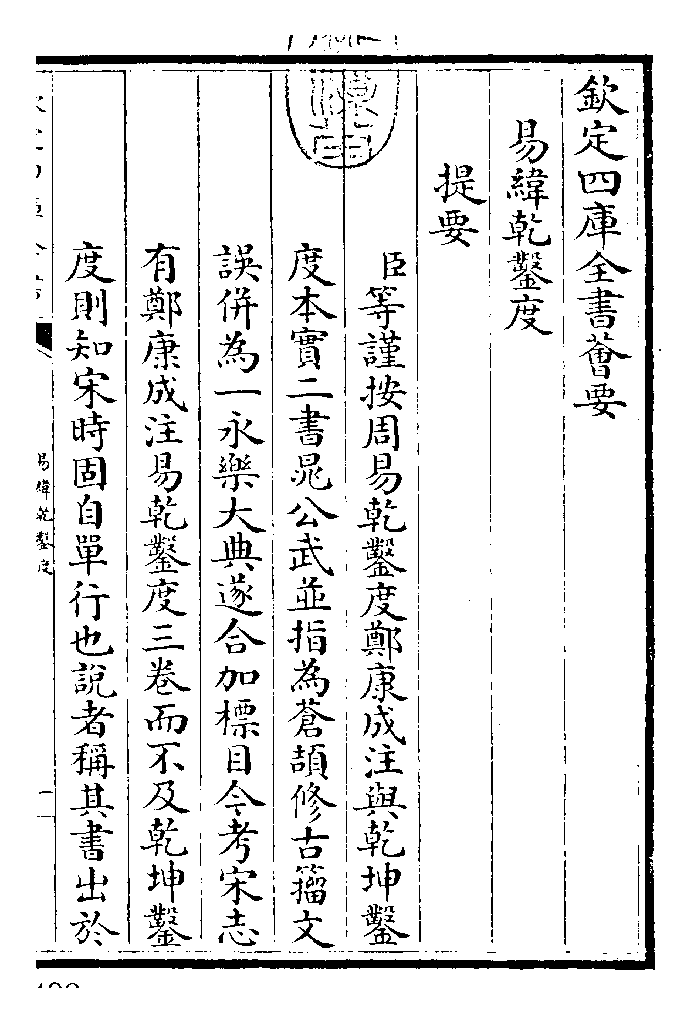 欽定四庫全書薈要
易緯乾鑿度
提要
臣等謹按周易乾鑿度鄭康成注與乾坤鑿
度本實二書晁公武並指為蒼頡修古籀文
誤併為一永樂大典遂合加標目今考宋志
有鄭康成注易乾鑿度三卷而不及乾坤鑿
度則知宋時固自單行也說者稱其書出於
易緯乾鑿度
一